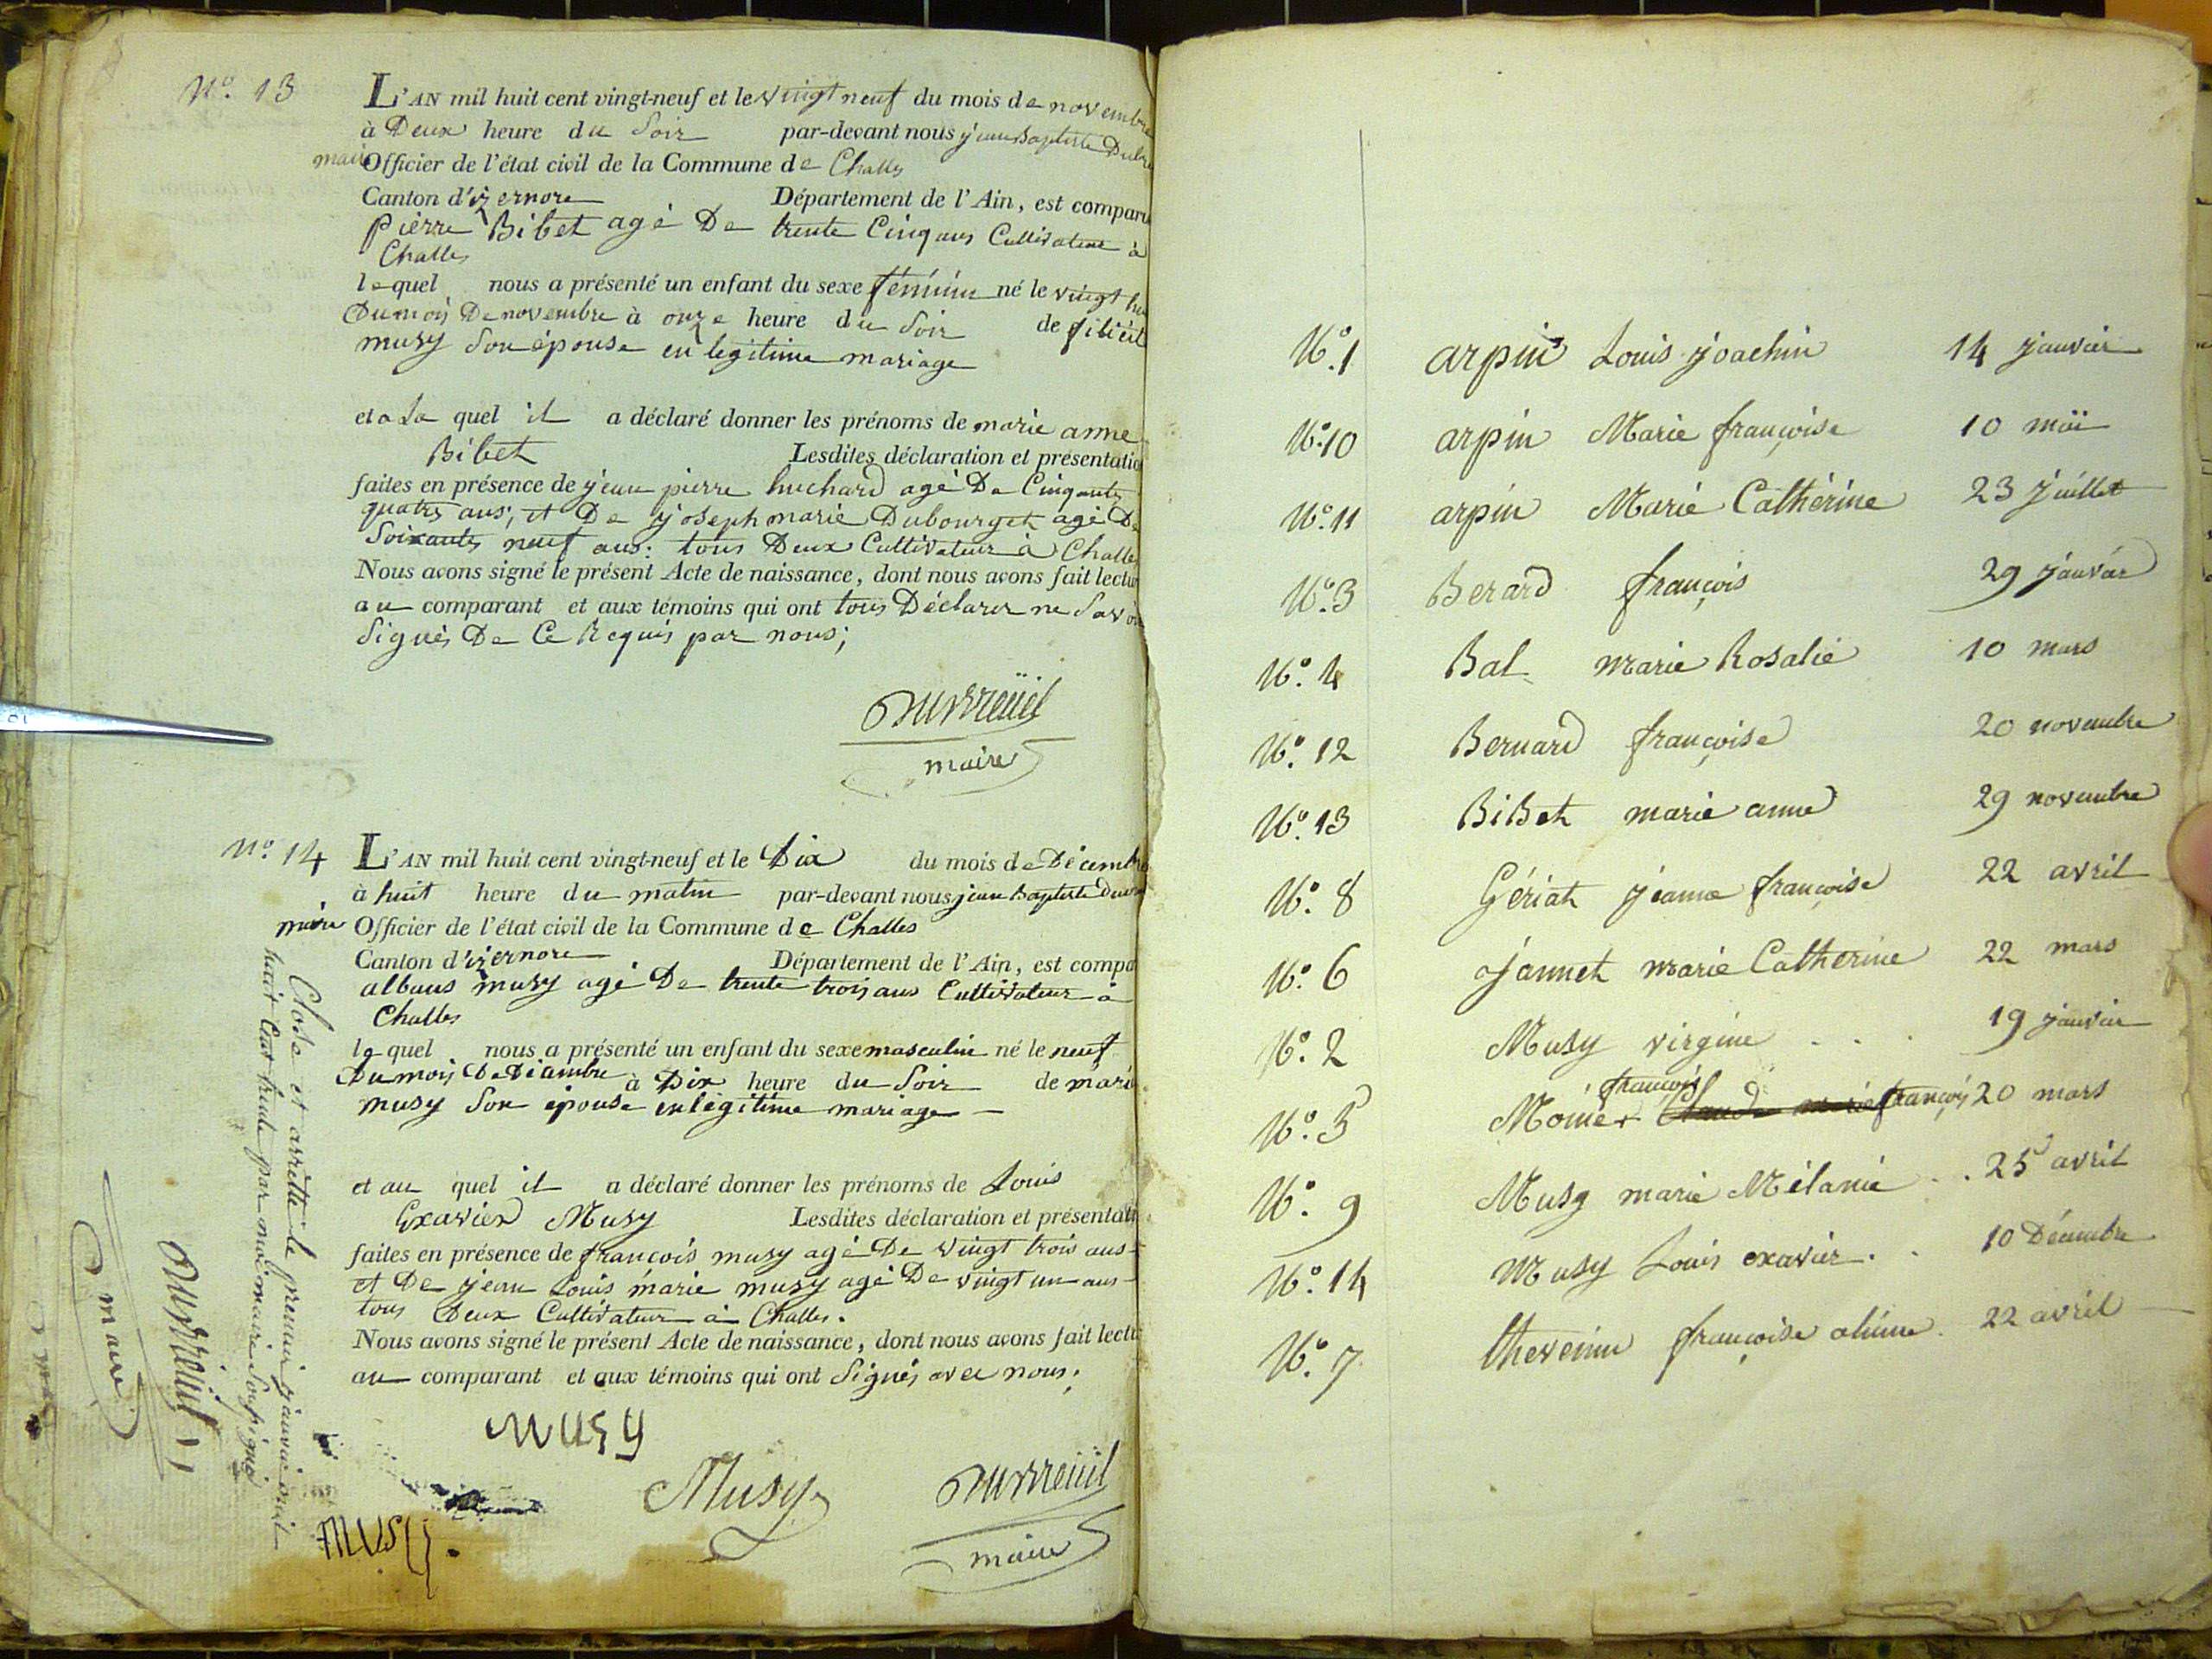 N.° 13
L'AN mil huit cent vingt-neuf et le vingt neuf du mois de novembre
à Deux heure du Soir par-devant nous jean Baptiste
maire Officier de l'état civil de la Commune de Challes
Canton d'izernore Département de l'Ain, est comparu
pierre Bibet agé De trente Cinq ans Cultivateur à
Challes
lequel nous a présenté un enfant du sexe féminin né le vingt
Du mois De novembre à onze heure du Soir de
musy Son épouse en legitime mariage
et a La quel il a déclaré donner les prénoms de marie anne
Bibet Lesdites déclaration et présentation
faites en présence de jean pierre huchard agé De Cinquante
quatre ans, et De joseph marie Dubourget agé De
Soixante neuf ans: tous Deux Cultivateur à Challes
Nous avons signé le présent Acte de naissance, dont nous avons fait lectu
au comparant et aux témoins qui ont tous Déclarer ne Savoir
Signés De Ce Requis par nous;
Duvreüil
maire
N.° 14
L'AN mil huit cent vingt-neuf et le Dix du mois de Décembre
à huit heure du matin par-devant nous jean Baptiste
maire Officier de l'état civil de la Commune de Challes
Canton d'izernore Département de l'Ain, est compa
albans musy agé De trente trois ans Cultivateur à
Challes
lequel nous a présenté un enfant du sexe masculin né le neuf
Du mois De Décembre à Dix heure du Soir de marie
musy Son épouse en légitime mariage
et au quel il a déclaré donner les prénoms de Louis
Exavier Musy Lesdites déclaration et présentati
faites en présence de françois musy agé De vingt trois ans
et De jean Louis marie musy agé De vingt un ans
tous Deux Cultivateur à Challes.
Nous avons signé le présent Acte de naissance, dont nous avons fait lectu
au comparant et aux témoins qui ont Signés avec nous;
musy
Musy
Duvreüil
maire
musy.
Close et arretté le premier janvier mil
huit Cent trente par moi maire Soussigné
Duvreüil
maire
N.° 1 arpin Louis joachin 14 janvier
N.° 10 arpin Marie françoise 10 mai
N.° 11 arpin Marie Cathérine 23 juillet
N.° 3 Berard françois 29 janvier
N.° 4 Bal marie Rosalie 10 mars
N.° 12 Bernard françoise 20 novembre
N.° 13 BiBet marie anne 29 novembre
N.° 8 Gériat jeanne françoise 22 avril
N.° 6 jannet marie Catherine 22 mars
N.° 2 Musy virginie . . . 19 janvier
françois
N.° 5 Moine françois 20 mars
N.° 9 Musy marie Mélanie . . 25 avril
N.° 14 Musy Louis exavier . . 10 Décembre
N.° 7 thevenin françoise 22 avril